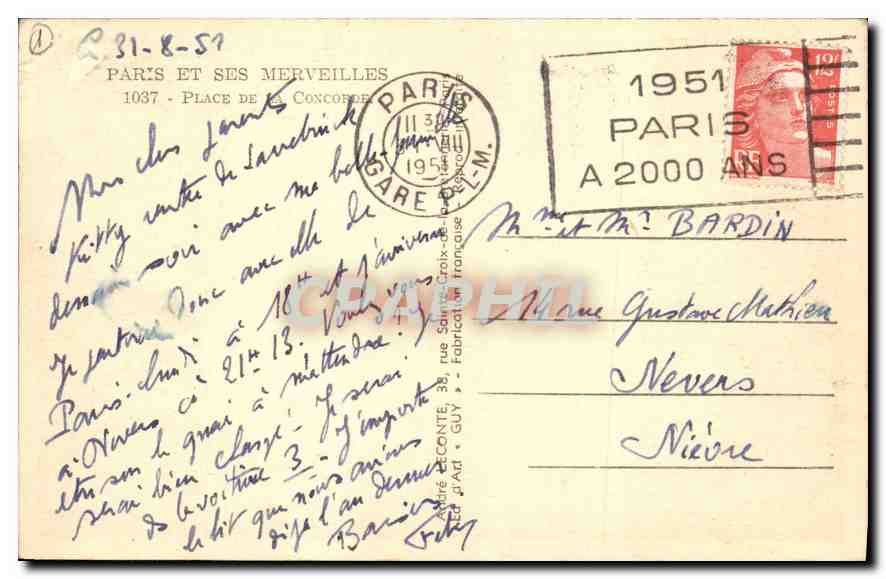 1
31-8-51
PARIS ET SES MERVEILLES
1037 - PLACE DE LA CONCORDE
Mes chers parents
Kitty rentre de Sarrebruck
demain soir avec ma belle-
Je partirai donc avec elle de
Paris-lundi à 18H et j'arriverai
à Nevers à 21H-13. Voulez vous
être sur le quai à m'attendre! Je
serai bien chargé! Je serai
de la voiture 3 - J'emporte
le lit que nous avions
déjà l'an dernier
Baisers
PARIS
1951
GARE P.L-M.
1951
PARIS
A 2000 ANS
12F
POSTES
RF
Mme et Mr BARDIN
14 rue Gustave Mathieu
Nevers
Nièvre
André LECONTE, 38, rue Sainte-Croix-de-la-Bretonnerie, Paris
Ed. d'Art « GUY » - Fabrication française - Reproduction interdite
CRAPHIL